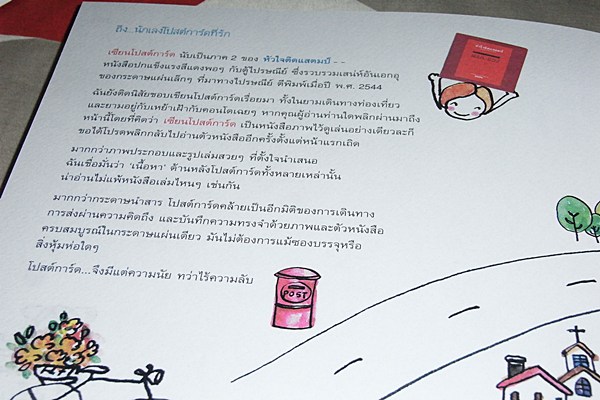 ถึง...นักเลงโปสต์การ์ดที่รัก
เซียนโปสต์การ์ด นับเป็นภาค 2 ของ หัวใจติดแสตมป์ --
หนังสือปกแข็งแรงสีแดงพอๆ กับตู้ไปรษณีย์ ซึ่งรวบรวมเสน่ห์อันเอกอุ
ของกระดาษแผ่นเล็กๆ ที่มาทางไปรษณีย์ ตีพิมพ์เมื่อปี พ.ศ. 2544
ฉันยังติดนิสัยชอบเขียนโปสต์การ์ดเรื่อยมา ทั้งในยามเดินทางท่องเที่ยว
และยามอยู่กับเหย้าเฝ้ากับคอนโดเฉยๆ หากคุณผู้อ่านท่านใดพลิกผ่านมาถึง
หน้านี้โดยที่คิดว่า เซียนโปสต์การ์ด เป็นหนังสือภาพไว้ดูเล่นอย่างเดียวละก็
ขอได้โปรดพลิกกลับไปอ่านตัวหนังสืออีกครั้งตั้งแต่หน้าแรกเถิด
มากกว่าภาพประกอบและรูปเล่มสวยๆ ที่ตั้งใจนำเสนอ
ฉันเชื่อมั่นว่า 'เนื้อหา' ด้านหลังโปสต์การ์ดทั้งหลายเหล่านั้น
น่าอ่านไม่แพ้หนังสือเล่มไหนๆ เช่นกัน
มากกว่ากระดาษนำสาร โปสต์การ์ดคล้ายเป็นอีกมิติของการเดินทาง
การส่งผ่านความคิดถึง และบันทึกความทรงจำด้วยภาพและตัวหนังสือ
ครบสมบูรณ์ในกระดาษแผ่นเดียว มันไม่ต้องการแม้ซองบรรจุหรือ
สิ่งหุ้มห่อใดๆ
โปสต์การ์ด...จึงมีแต่ความนัย ทว่าไร้ความลับ
POST